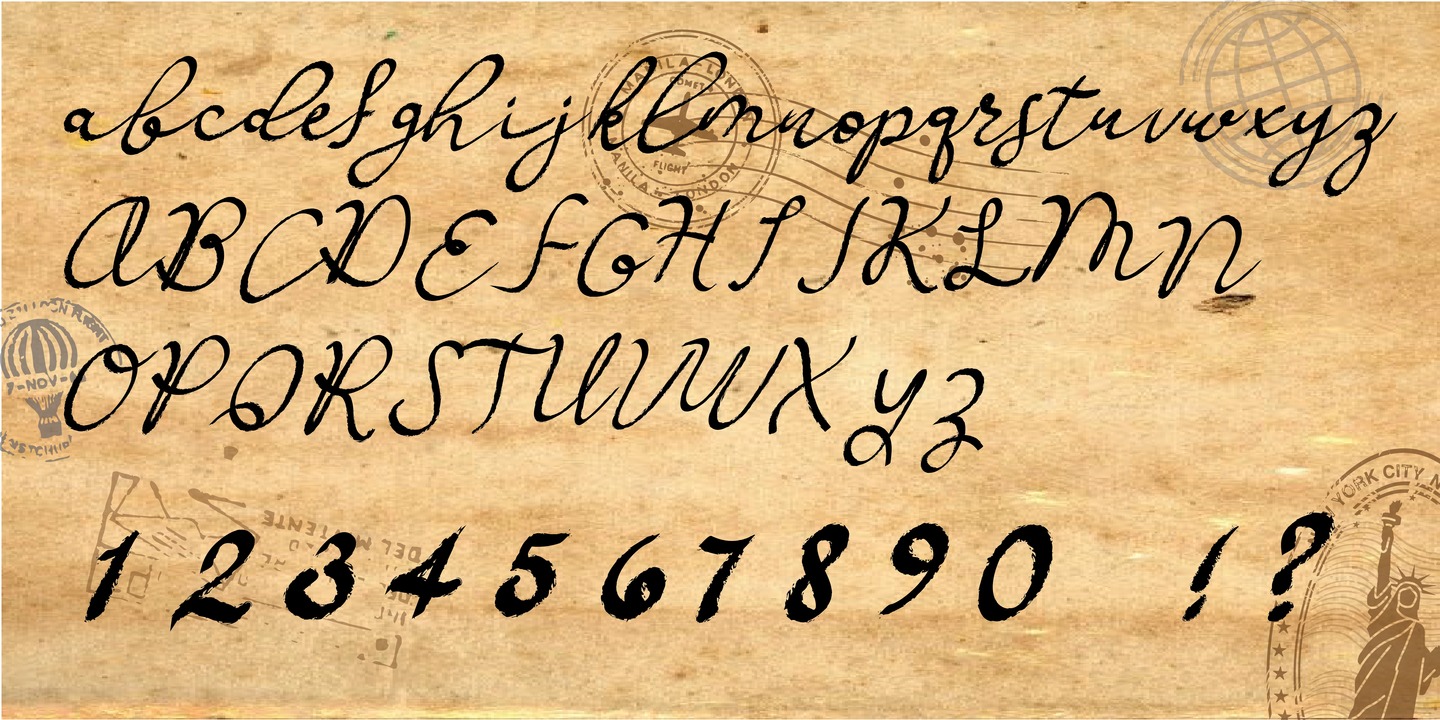 abcdefghijklmnopqrstuvwxyz
ABCDEFGHIJKLMN
OPQRSTUVWXYZ
1234567890 !?
MANILA - LONDON
COMET
FLIGHT
MANILA - LONDON
-NOV-
YORK CITY
DEL